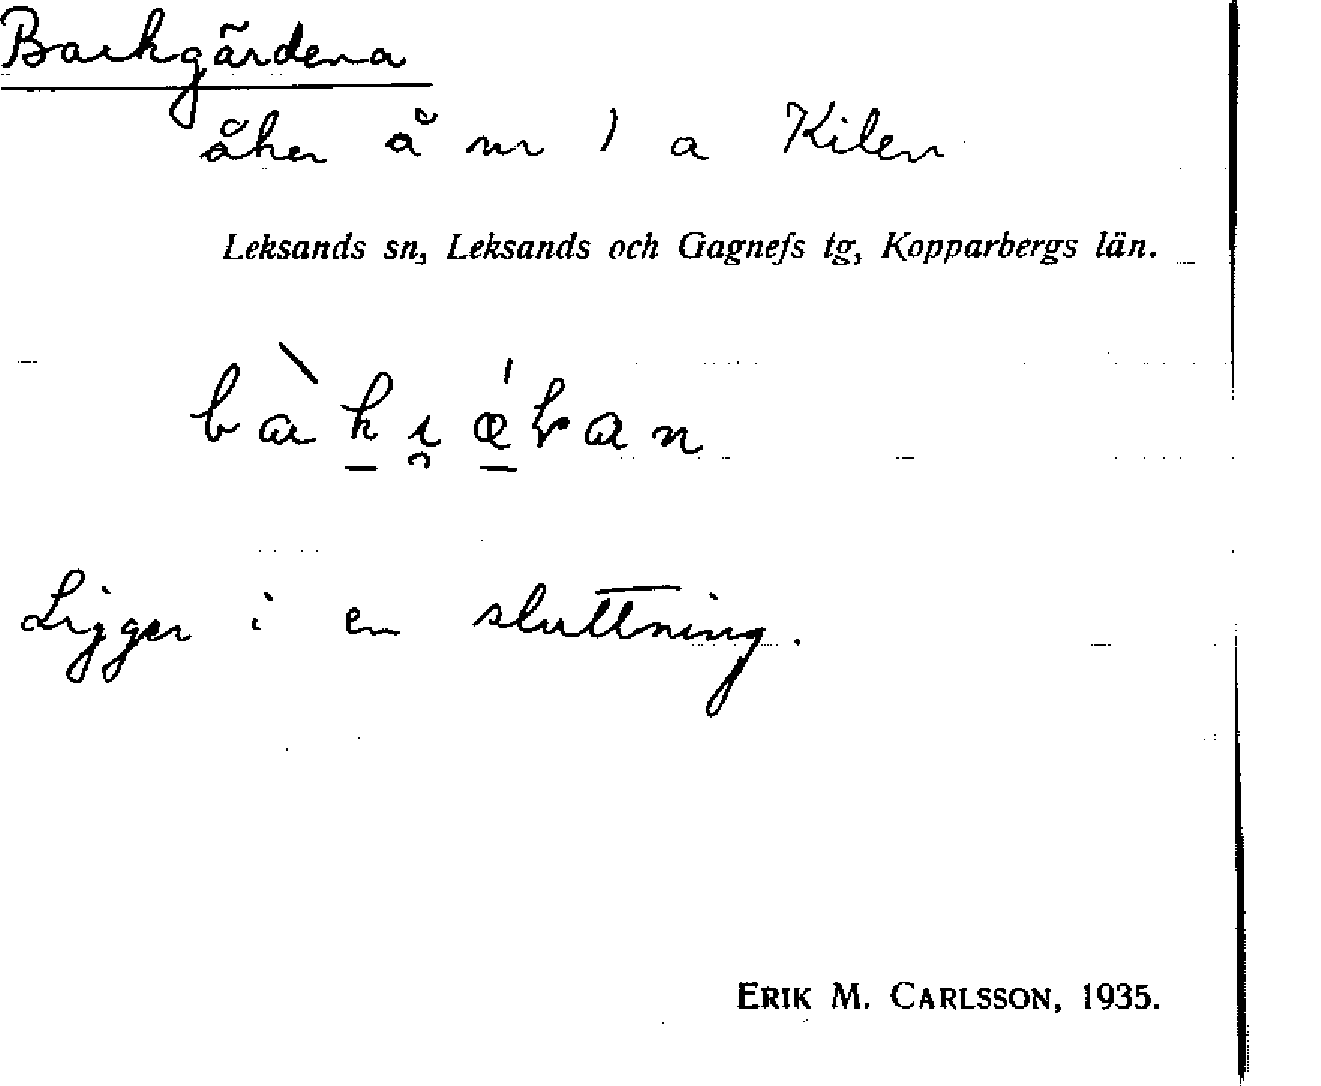 Backgårdena
åker å nr 1 a Kilen
Leksands sn, Leksands och Gagnefs tg, Kopparbergs län.
Ligger i en sluttning.
ERIK M. CARLSSON, 1935.